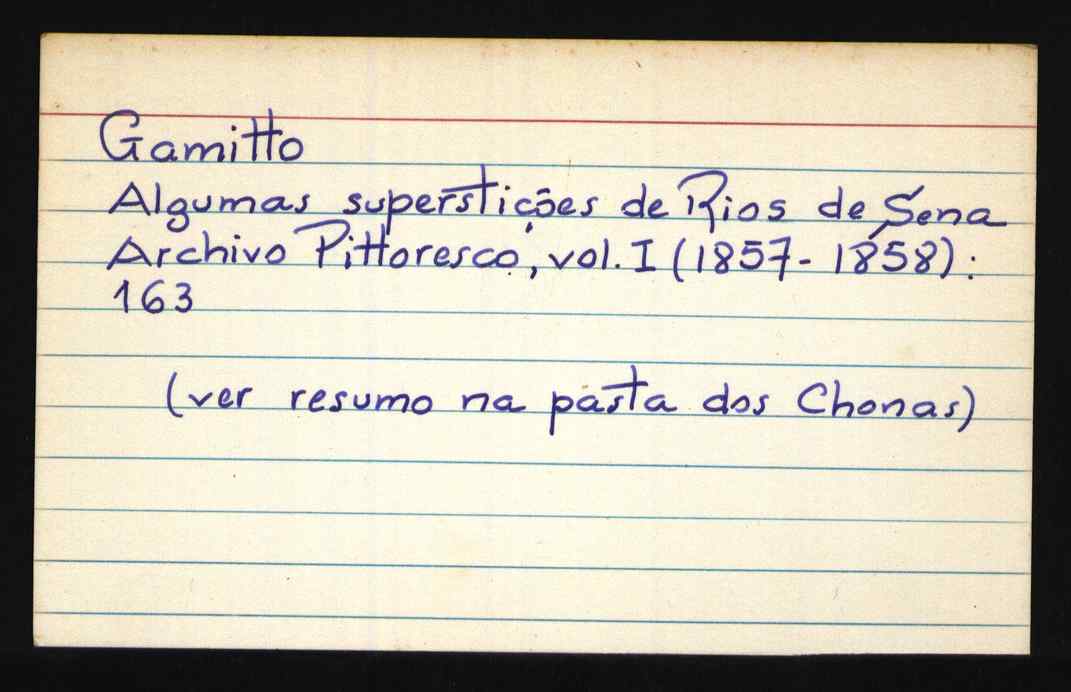 Gamitto
Algumas superstições de Rios de Sena
Archivo Pittoresco, vol. I (1857-1858):
163
(ver resumo na pasta dos Chonas)